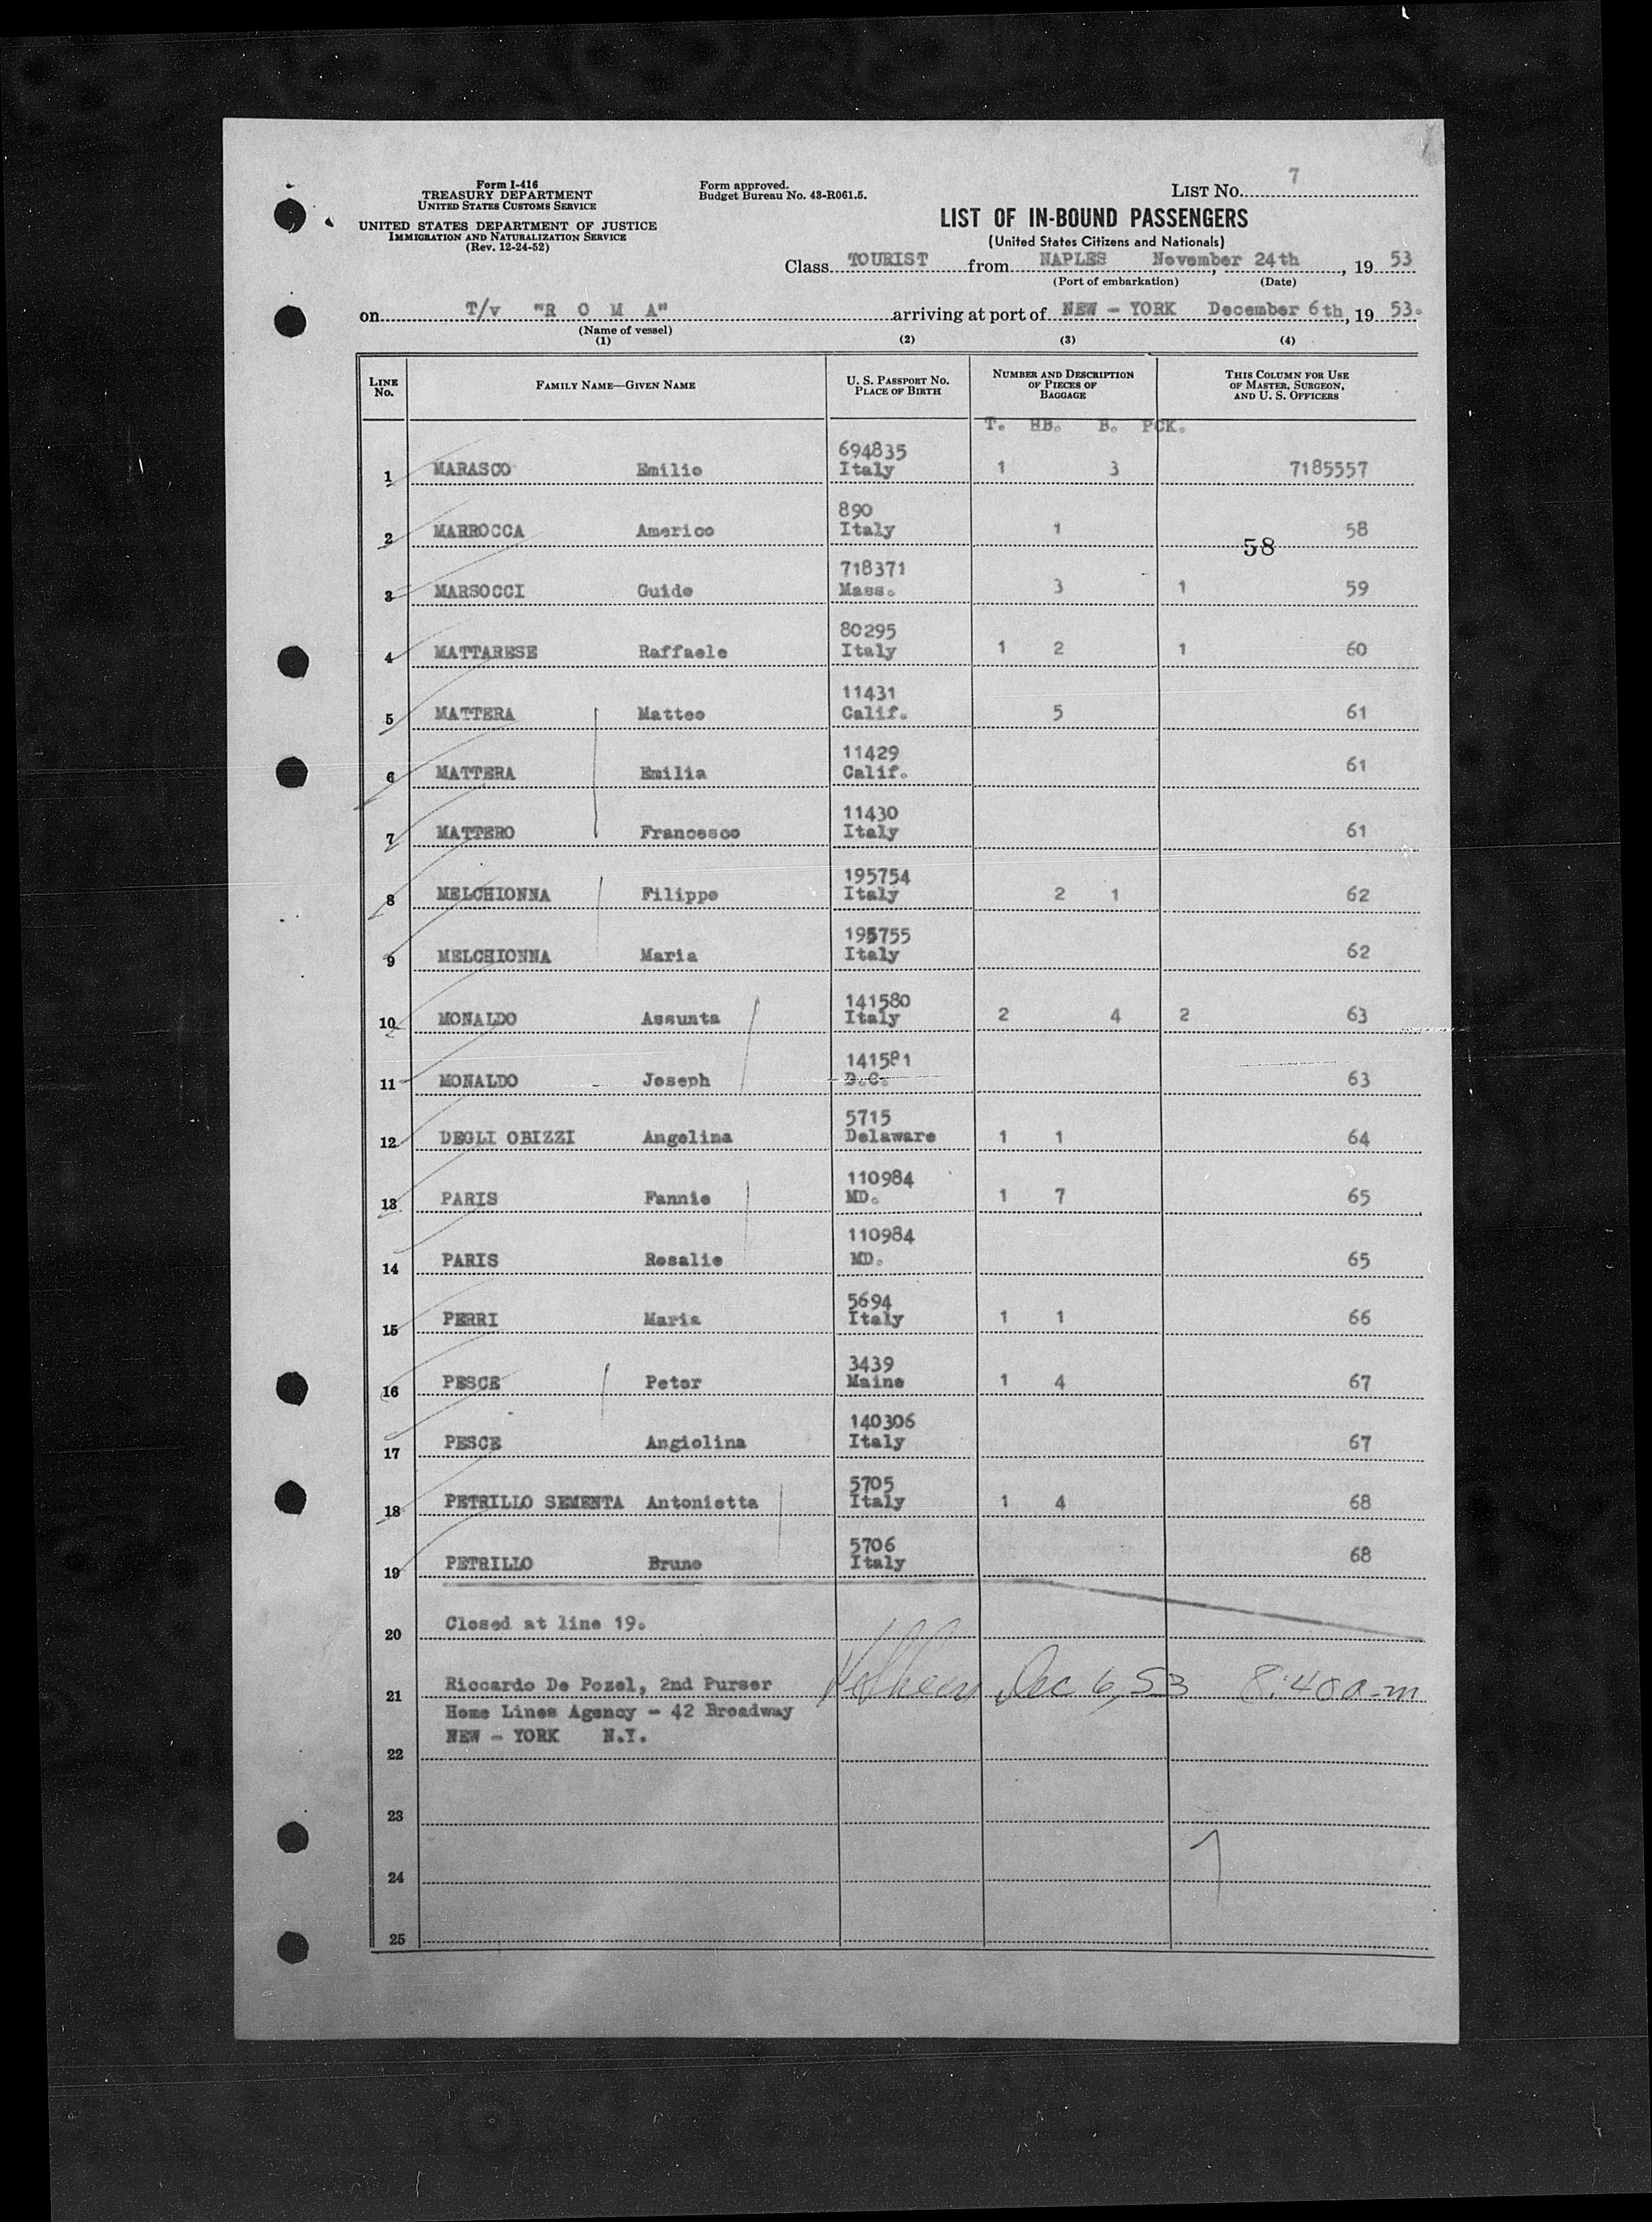 Form I-416
TREASURY DEPARTMENT
UNITED STATES CUSTOMS SERVICE
UNITED STATES DEPARTMENT OF JUSTICE
IMMIGRATION AND NATURALIZATION SERVICE
(Rev. 12-24-52)
Form approved.
Budget Bureau No. 43-R061.5.
LIST NO. 7
LIST OF IN-BOUND PASSENGERS
(United States Citizens and Nationals)
Class TOURIST from NAPLES November 24th, 19 53
(Port of embarkation) (Date)
on T/v "R O M A" arriving at port of NEW - YORK December 6th, 19 53.
(Name of vessel)
(1) (2) (3) (4)
LINE No. FAMILY NAME—GIVEN NAME U. S. PASSPORT NO. PLACE OF BIRTH NUMBER AND DESCRIPTION OF PIECES OF BAGGAGE THIS COLUMN FOR USE OF MASTER, SURGEON, AND U. S. OFFICERS
T. HB. B. PCK.
694835
1 MARASCO Emilio Italy 1 3 7185557
890
2 MARROCCA Americo Italy 1 58
58
718371
3 MARSOCCI Guido Mass. 3 1 59
80295
4 MATTARESE Raffaele Italy 1 2 1 60
11431
5 MATTERA Matteo Calif. 5 61
11429
6 MATTERA Emilia Calif. 61
11430
7 MATTERO Francesco Italy 61
195754
8 MELCHIONNA Filippo Italy 2 1 62
195755
9 MELCHIONNA Maria Italy 62
141580
10 MONALDO Assunta Italy 2 4 2 63
141581
11 MONALDO Joseph D.C. 63
5715
12 DEGLI OBIZZI Angelina Delaware 1 1 64
110984
13 PARIS Fannie MD. 1 7 65
110984
14 PARIS Rosalie MD. 65
5694
15 PERRI Maria Italy 1 1 66
3439
16 PESCE Peter Maine 1 4 67
140306
17 PESCE Angiolina Italy 67
5705
18 PETRILLO SEMENTA Antonietta Italy 1 4 68
5706
19 PETRILLO Bruno Italy 68
20 Closed at line 19.
21 Riccardo De Pozel, 2nd Purser Dec 6, 53 8:40 a-m
Home Lines Agency - 42 Broadway
NEW - YORK N.Y.
22
23
24
25